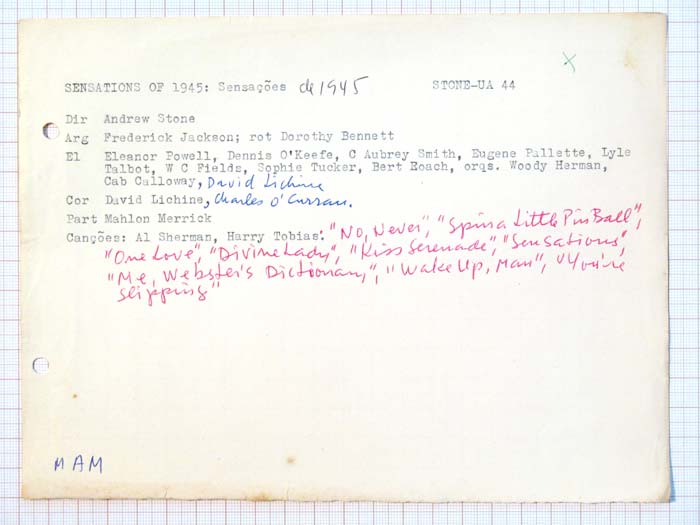 X
SENSATIONS OF 1945: Sensações de 1945 STONE-UA 44
Dir Andrew Stone
Arg Frederick Jackson; rot Dorothy Bennett
El Eleanor Powell, Dennis O'Keefe, C Aubrey Smith, Eugene Pallette, Lyle
Talbot, W C Fields, Sophie Tucker, Bert Roach, orqs. Woody Herman,
Cab Calloway, David Lichine
Cor David Lichine, Charles O'Curran.
Part Mahlon Merrick
Canções: Al Sherman, Harry Tobias: "No, Never", "Spin a Little Pin Ball",
"One Love", "Divine Lady", "Kiss Serenade", "Sensations",
"Me, Webster's Dictionary", "Wake Up, Man", "You're
slipping"
MAM